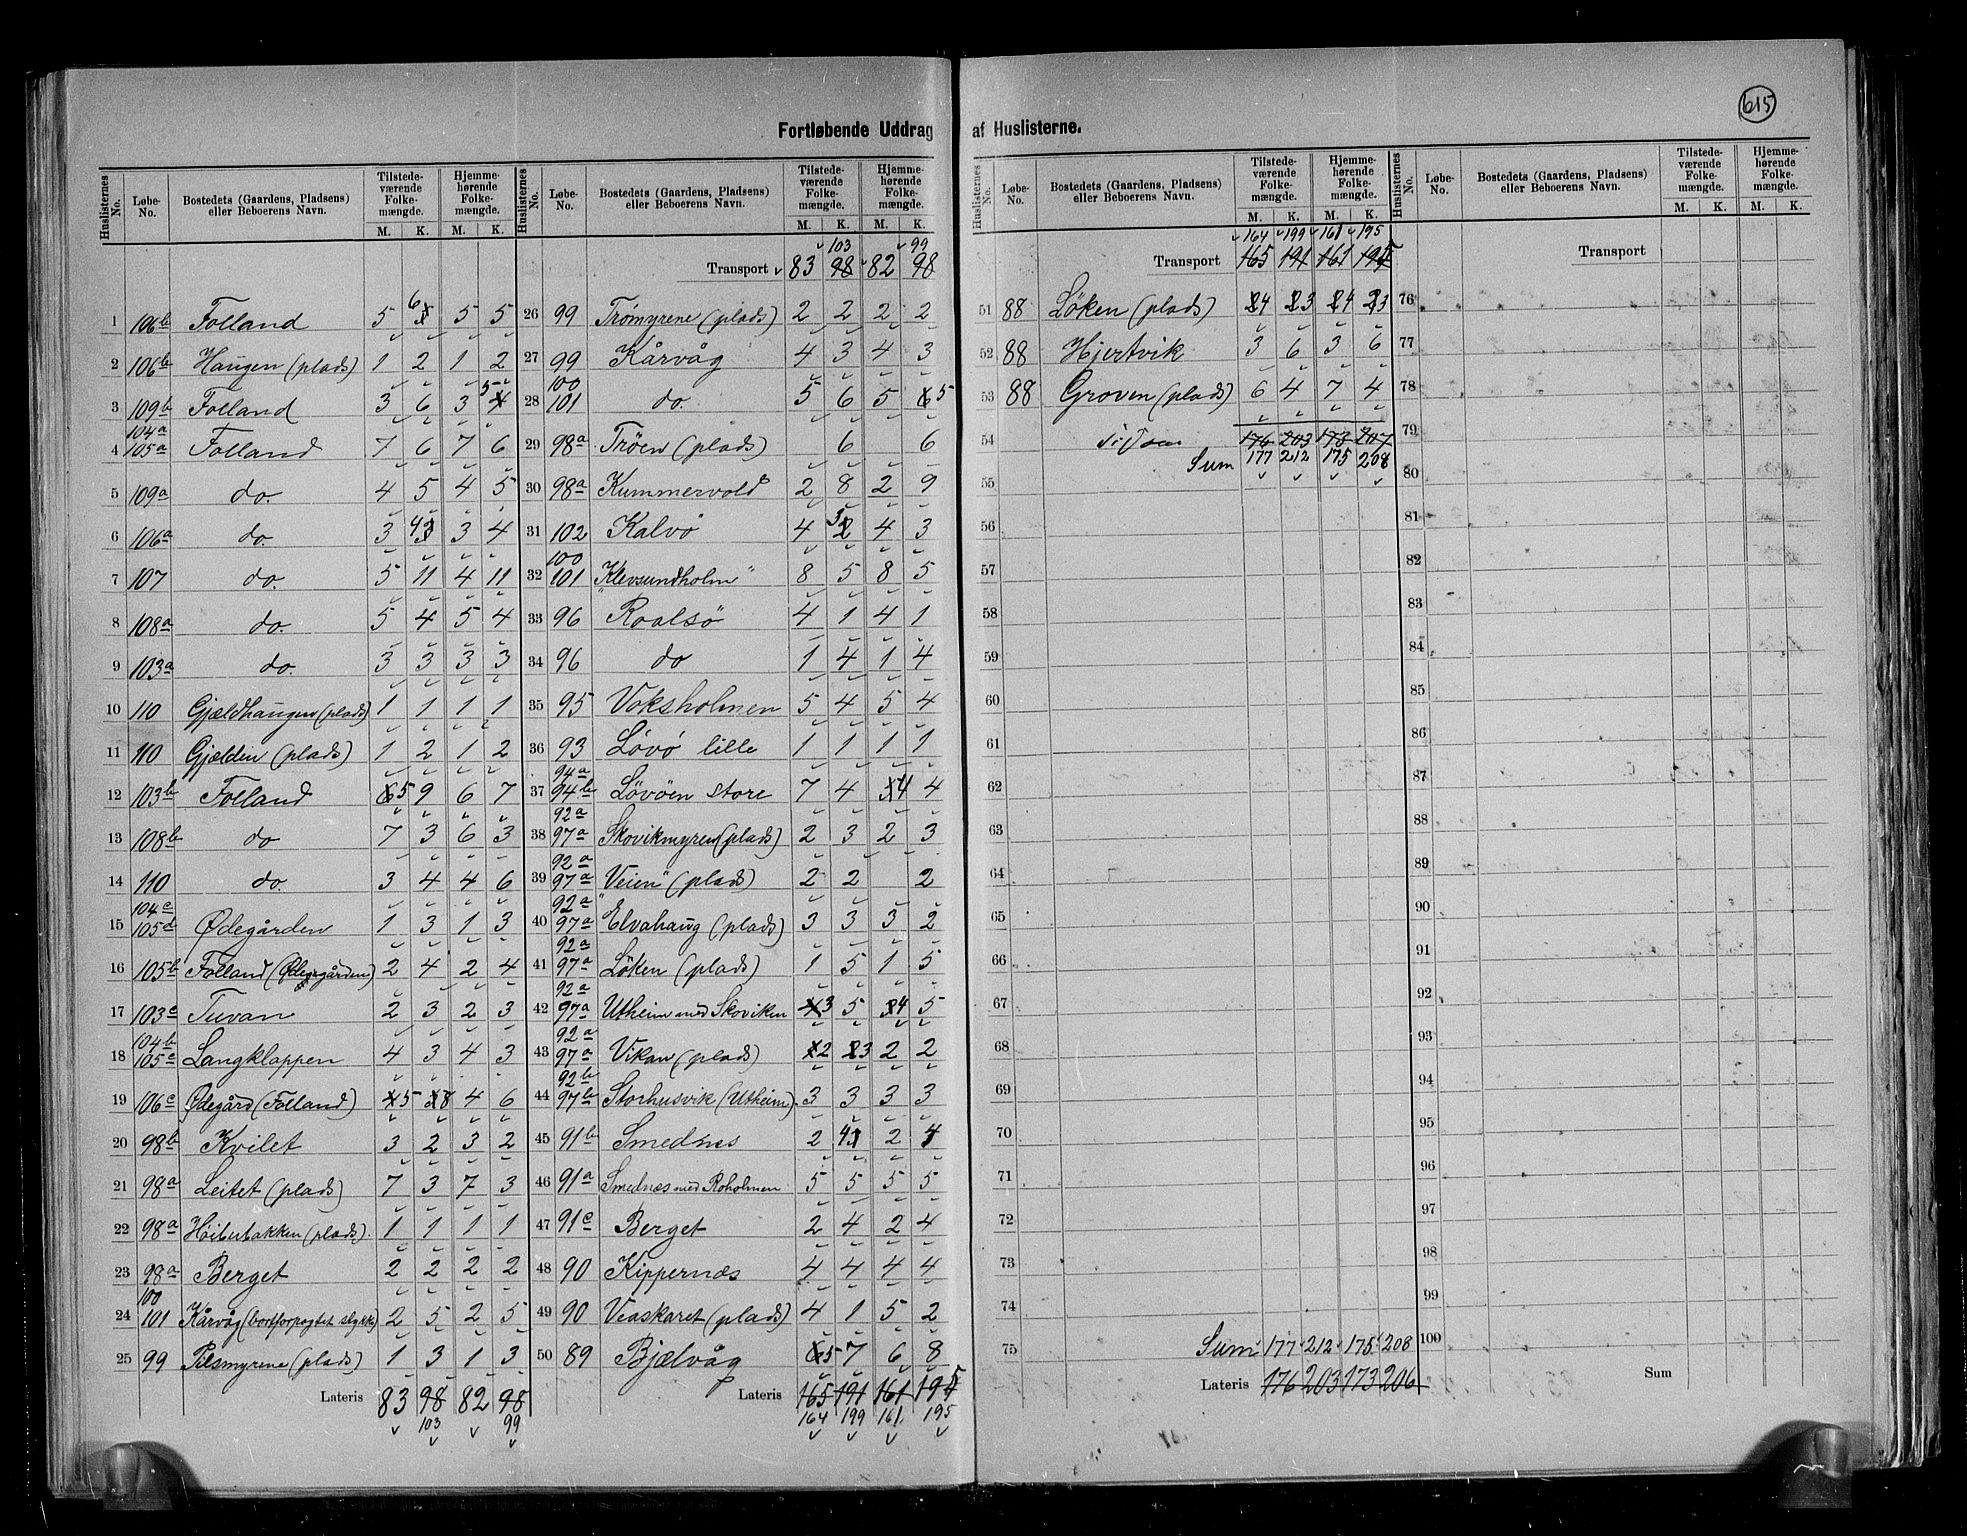 615
Fortløbende Uddrag af Huslisterne.
Huslisternes No. Løbe-No. Bostedets (Gaardens, Pladsens) eller Beboerens Navn. Tilstede-værende Folke-mængde. M. K. Hjemme-hørende Folke-mængde. M. K.
1 106b Folland 5 6 5 5
2 106b Haugen (plads) 1 2 1 2
3 109b Folland 3 6 3 5
4 104a 105a Folland 7 6 7 6
5 109a do. 4 5 4 5
6 106a do. 3 4 3 4
7 107 do. 5 11 4 11
8 108a do. 5 4 5 4
9 103a do. 3 3 3 3
10 110 Gjældhaugen (plads) 1 1 1 1
11 110 Gjælden (plads) 1 2 1 2
12 103b Folland 5 9 6 7
13 108b do 7 3 6 3
14 110 do. 3 4 4 6
15 104c 105d Ødegården 1 3 1 3
16 105b Folland (Ødegården) 2 4 2 4
17 103c Tuvan 2 3 2 3
18 104b 105c Langklappen 4 3 4 3
19 106c Ødegård (Folland) 5 8 4 6
20 98b Kvilet 3 2 3 2
21 98a Leitet (plads) 7 3 7 3
22 98a (plads) 1 1 1 1
23 98a Berget 2 2 2 2
24 100 101 Kårvåg (bortforpagtet stykke) 2 5 2 5
25 99 (plads) 1 3 1 3
Lateris 83 98 82 98
103 99
Huslisternes No. Løbe-No. Bostedets (Gaardens, Pladsens) eller Beboerens Navn. Tilstede-værende Folke-mængde. M. K. Hjemme-hørende Folke-mængde. M. K.
103 99
Transport 83 98 82 98
26 99 Tromyrene (plads) 2 2 2 2
27 99 Kårvåg 4 3 4 3
28 100 101 do. 5 6 5 5
29 98a Trøen (plads) 6 6
30 98a Kummervold 2 8 2 9
31 102 Kalvø 4 3 4 3
32 100 101 "Klevsundholm" 8 5 8 5
33 96 Roalsö 4 1 4 1
34 96 do 1 4 1 4
35 95 Voksholmen 5 4 5 4
36 93 Løvø lille 1 1 1 1
37 94a 94b Løvøen store 7 4 4 4
38 92a 97a Skovikmyren (plads) 2 3 2 3
39 92a 97a Veien" (plads) 2 2 2
40 92a 97a "Elvahaug (plads) 3 3 3 2
41 92a 97a Løken (plads) 1 5 1 5
42 92a 97a Utheim med Skoviken 3 5 4 5
43 92a 97a Vikan (plads) 2 3 2 2
44 92b 97b Storhusvik (Utheim) 3 3 3 3
45 91b Smednes 2 4 2 4
46 91a Smednæs med Roholmen 5 5 5 5
47 91c Berget 2 4 2 4
48 90 Kippernæs 4 4 4 4
49 90 Veaskaret (plads) 4 1 5 2
50 89 Bjælvåg 5 7 6 8
Lateris 165 191 161 195
164 199 161 195
Huslisternes No. Løbe-No. Bostedets (Gaardens, Pladsens) eller Beboerens Navn. Tilstede-værende Folke-mængde. M. K. Hjemme-hørende Folke-mængde. M. K.
164 199 161 195
Transport 165 191 161 195
51 88 Løken (plads) 4 3 4 3
52 88 Hjertvik 3 6 3 6
53 88 Groven (plads) 6 4 7 4
54 176 203 173 207
Sum 177 212 175 208
55
56
57
58
59
60
61
62
63
64
65
66
67
68
69
70
71
72
73
74
75 Sum 177 212 175 208
Lateris 176 203 173 206
Huslisternes No. Løbe-No. Bostedets (Gaardens, Pladsens) eller Beboerens Navn. Tilstede-værende Folke-mængde. M. K. Hjemme-hørende Folke-mængde. M. K.
Transport
76
77
78
79
80
81
82
83
84
85
86
87
88
89
90
91
92
93
94
95
96
97
98
99
100
Sum